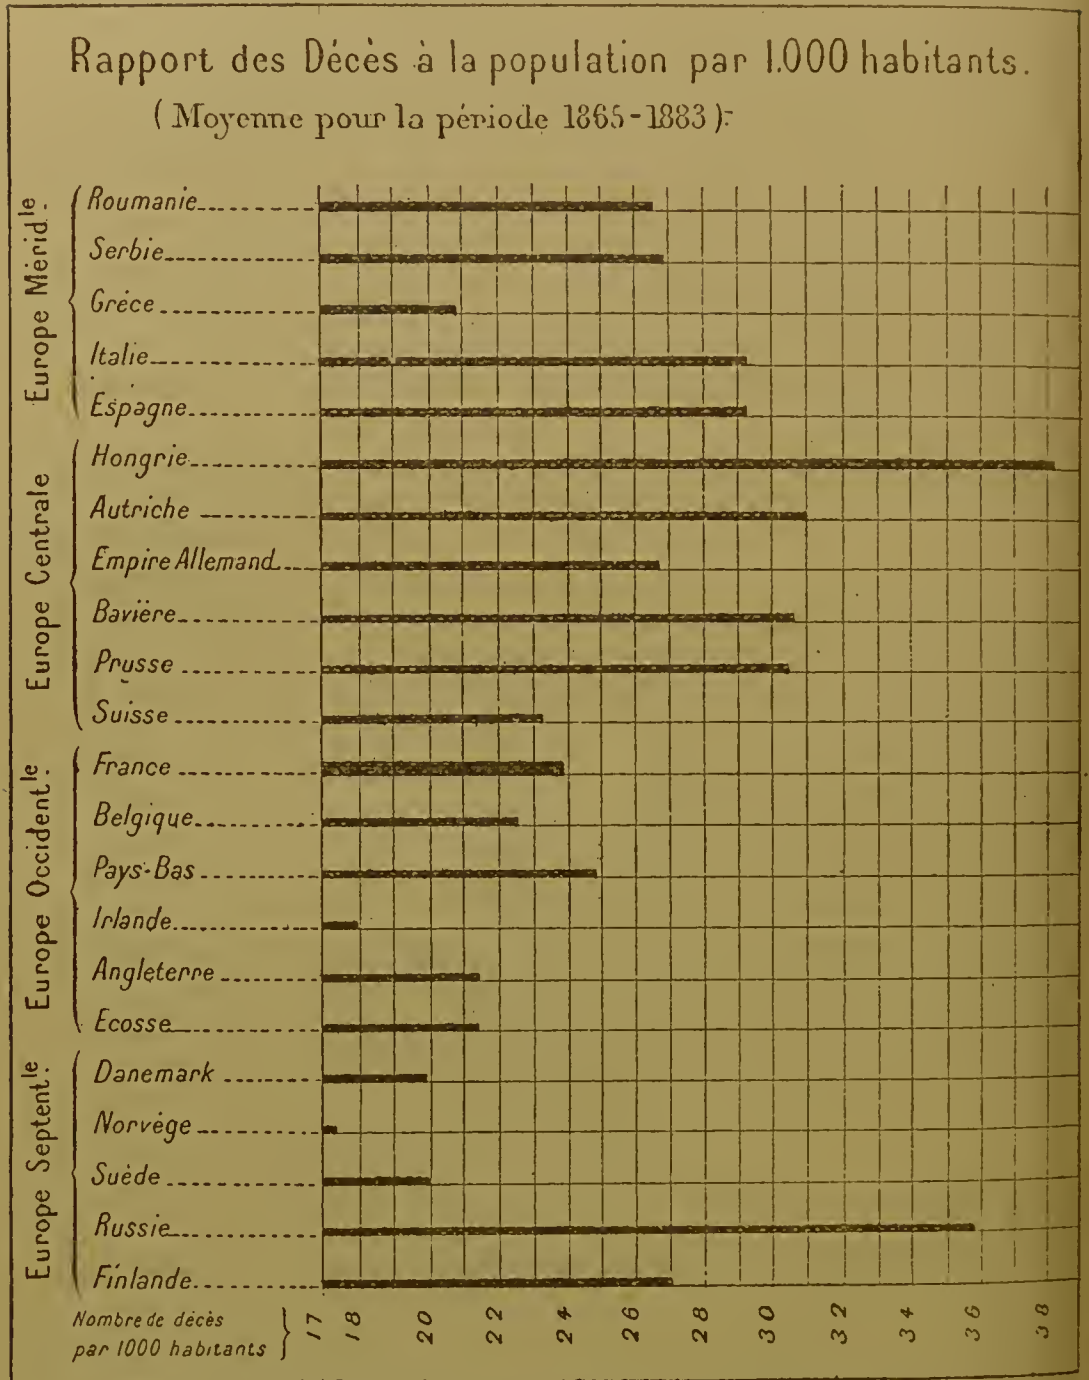 Rapport des Décès à la population par 1.000 habitants.
(Moyenne pour la période 1865-1883):
Europe Mérid.le
Roumanie
Serbie
Grèce
Italie
Espagne
Europe Centrale
Hongrie
Autriche
Empire Allemand
Bavière
Prusse
Suisse
Europe Occident.le
France
Belgique
Pays-Bas
Irlande
Angleterre
Ecosse
Europe Septent.le
Danemark
Norvège
Suède
Russie
Finlande
Nombre de décès
par 1000 habitants
17 18 20 22 24 26 28 30 32 34 36 38